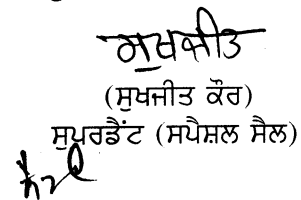 ਸੁਖਜੀਤ
(ਸੁਖਜੀਤ ਕੌਰ)
ਸੁਪਰਡੈਂਟ (ਸਪੈਸ਼ਲ ਸੈਲ)